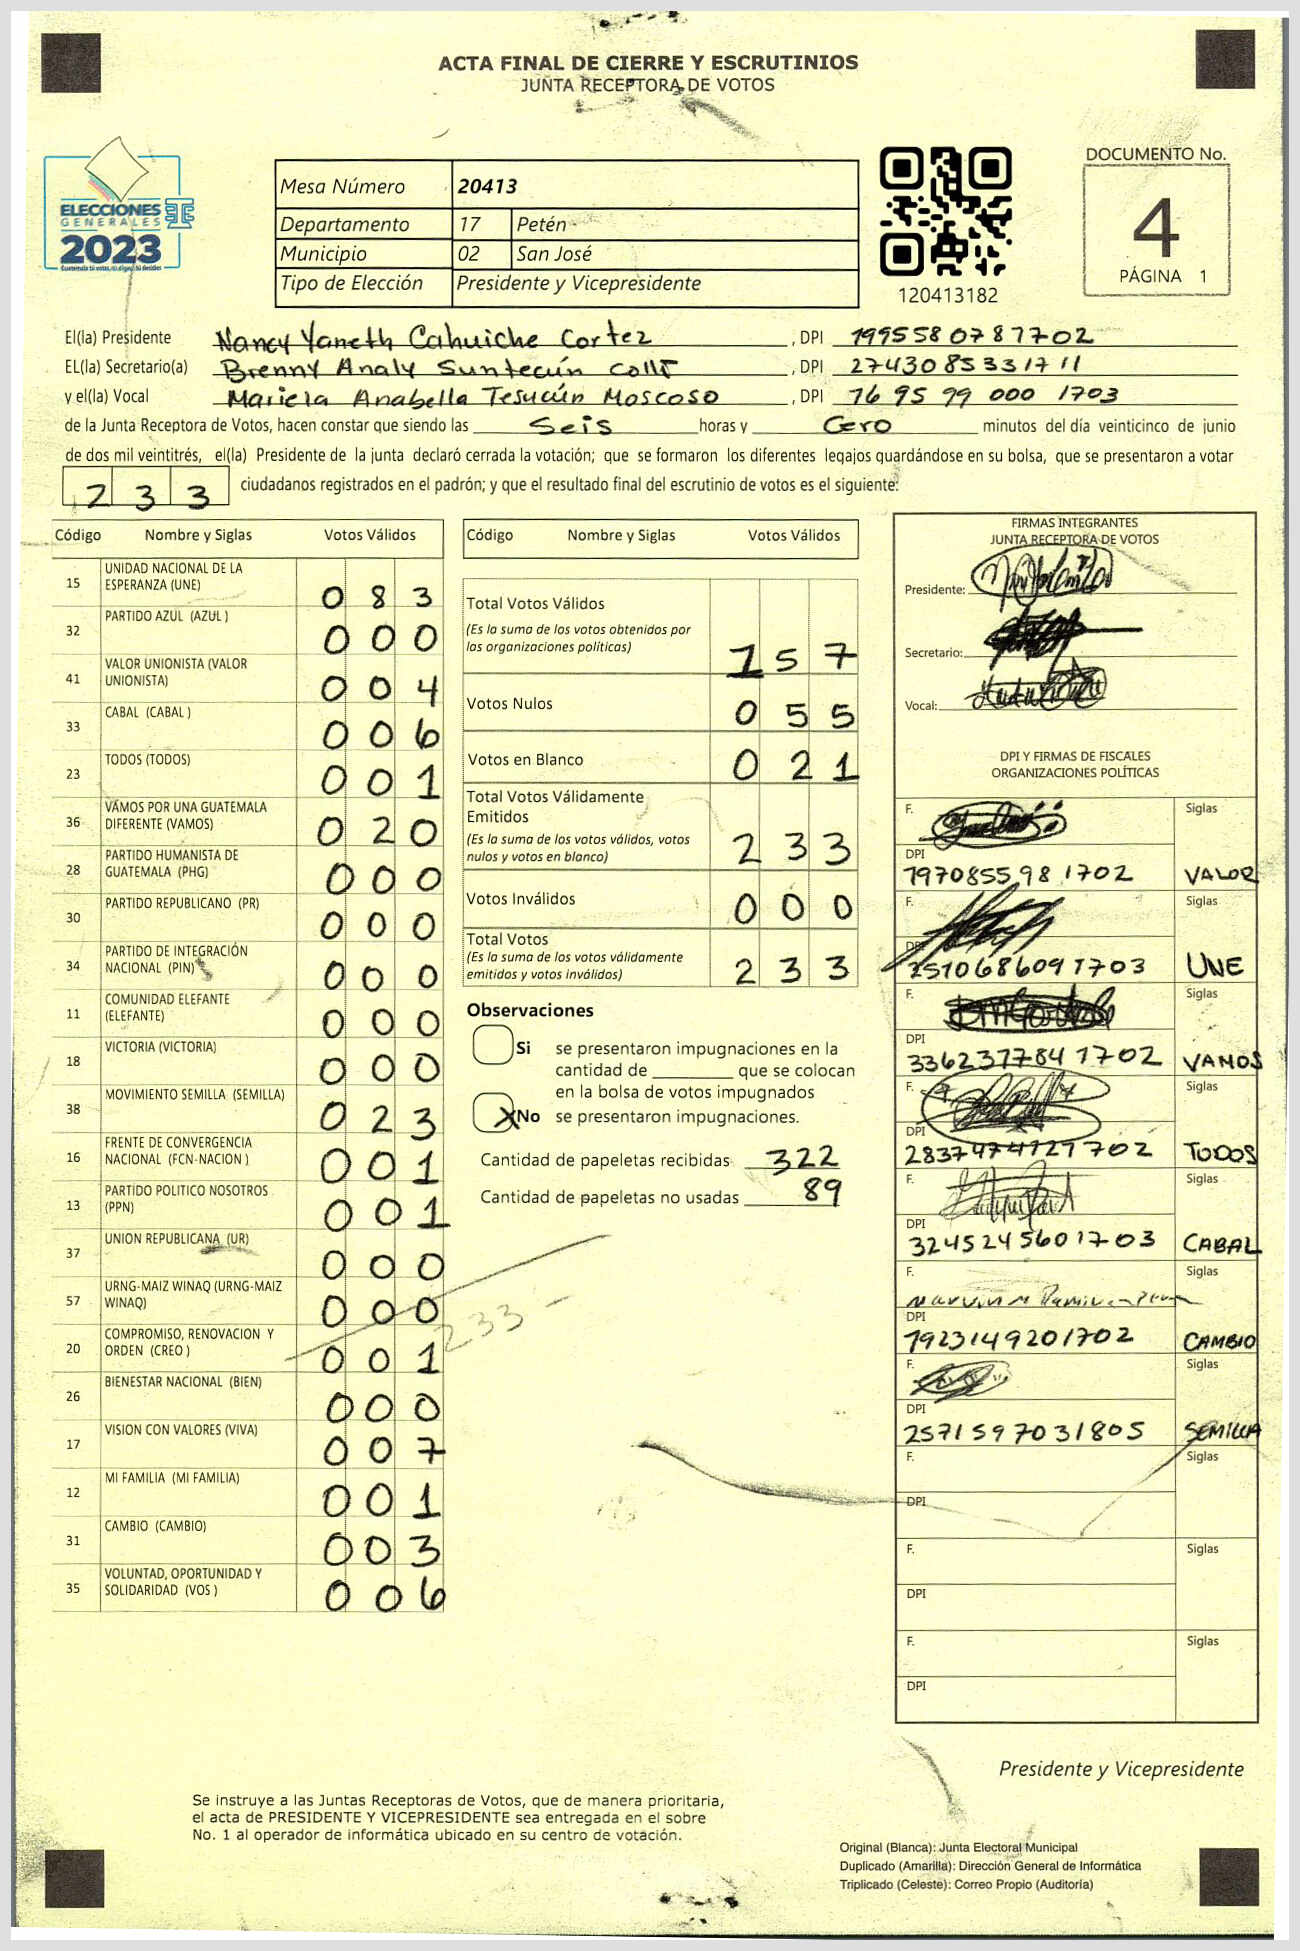 ACTA FINAL DE CIERRE Y ESCRUTINIOS
JUNTA RECEPTORA DE VOTOS
ELECCIONES
GENERALES
2023
Mesa Número 20413
Departamento 17 Petén
Municipio 02 San José
Tipo de Elección Presidente y Vicepresidente
120413182
DOCUMENTO No.
4
PÁGINA 1
El(la) Presidente Nancy Yaneth Cahuiche Cortez , DPI 1995580787702
EL(la) Secretario(a) Brenny Analy Suntecún Collí , DPI 2743085331711
y el(la) Vocal Mariela Anabella Tesucún Moscoso , DPI 76 95 99 000 1703
de la Junta Receptora de Votos, hacen constar que siendo las Seis horas y Cero minutos del día veinticinco de junio
de dos mil veintitrés, el(la) Presidente de la junta declaró cerrada la votación; que se formaron los diferentes legajos guardándose en su bolsa, que se presentaron a votar
233 ciudadanos registrados en el padrón; y que el resultado final del escrutinio de votos es el siguiente:
Código Nombre y Siglas Votos Válidos
15 UNIDAD NACIONAL DE LA ESPERANZA (UNE) 083
32 PARTIDO AZUL (AZUL ) 000
41 VALOR UNIONISTA (VALOR UNIONISTA) 004
33 CABAL (CABAL ) 006
23 TODOS (TODOS) 001
36 VAMOS POR UNA GUATEMALA DIFERENTE (VAMOS) 020
28 PARTIDO HUMANISTA DE GUATEMALA (PHG) 000
30 PARTIDO REPUBLICANO (PR) 000
34 PARTIDO DE INTEGRACIÓN NACIONAL (PIN) 000
11 COMUNIDAD ELEFANTE (ELEFANTE) 000
18 VICTORIA (VICTORIA) 000
38 MOVIMIENTO SEMILLA (SEMILLA) 023
16 FRENTE DE CONVERGENCIA NACIONAL (FCN-NACION ) 001
13 PARTIDO POLITICO NOSOTROS (PPN) 001
37 UNION REPUBLICANA (UR) 000
57 URNG-MAIZ WINAQ (URNG-MAIZ WINAQ) 000
20 COMPROMISO, RENOVACION Y ORDEN (CREO ) 001
26 BIENESTAR NACIONAL (BIEN) 000
17 VISION CON VALORES (VIVA) 007
12 MI FAMILIA (MI FAMILIA) 001
31 CAMBIO (CAMBIO) 003
35 VOLUNTAD, OPORTUNIDAD Y SOLIDARIDAD (VOS ) 006
Código Nombre y Siglas Votos Válidos
Total Votos Válidos
(Es la suma de los votos obtenidos por
las organizaciones políticas) 157
Votos Nulos 055
Votos en Blanco 021
Total Votos Válidamente
Emitidos
(Es la suma de los votos válidos, votos
nulos y votos en blanco) 233
Votos Inválidos 000
Total Votos
(Es la suma de los votos válidamente
emitidos y votos inválidos) 233
Observaciones
Si se presentaron impugnaciones en la
cantidad de ________ que se colocan
en la bolsa de votos impugnados
X No se presentaron impugnaciones.
Cantidad de papeletas recibidas 322
Cantidad de papeletas no usadas 89
233 -
FIRMAS INTEGRANTES
JUNTA RECEPTORA DE VOTOS
Presidente:
Secretario:
Vocal:
DPI Y FIRMAS DE FISCALES
ORGANIZACIONES POLÍTICAS
F. Siglas
DPI
1970855981702 VALOR
F. Siglas
DPI
2510686091703 UNE
F. Siglas
DPI
3362377841702 VAMOS
F. Siglas
DPI
2837474121702 TODOS
F. Siglas
DPI
3245245601703 CABAL
F. Siglas
DPI
1923149201702 CAMBIO
F. Siglas
DPI
2571597031805 SEMILLA
F. Siglas
DPI
F. Siglas
DPI
F. Siglas
DPI
Presidente y Vicepresidente
Se instruye a las Juntas Receptoras de Votos, que de manera prioritaria,
el acta de PRESIDENTE Y VICEPRESIDENTE sea entregada en el sobre
No. 1 al operador de informática ubicado en su centro de votación.
Original (Blanca): Junta Electoral Municipal
Duplicado (Amarilla): Dirección General de Informática
Triplicado (Celeste): Correo Propio (Auditoría)